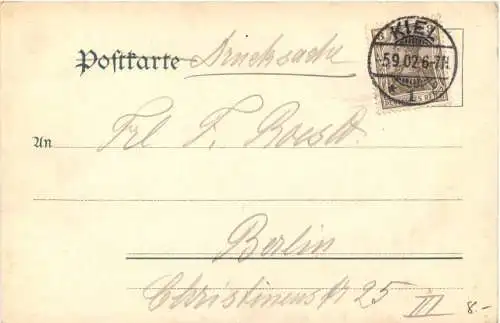 KIEL
Postkarte Drucksache
5.9.02.6-7N.
* 1 b
An Frl F. Roestel.
Berlin
Christinenstr 25 III
8.-